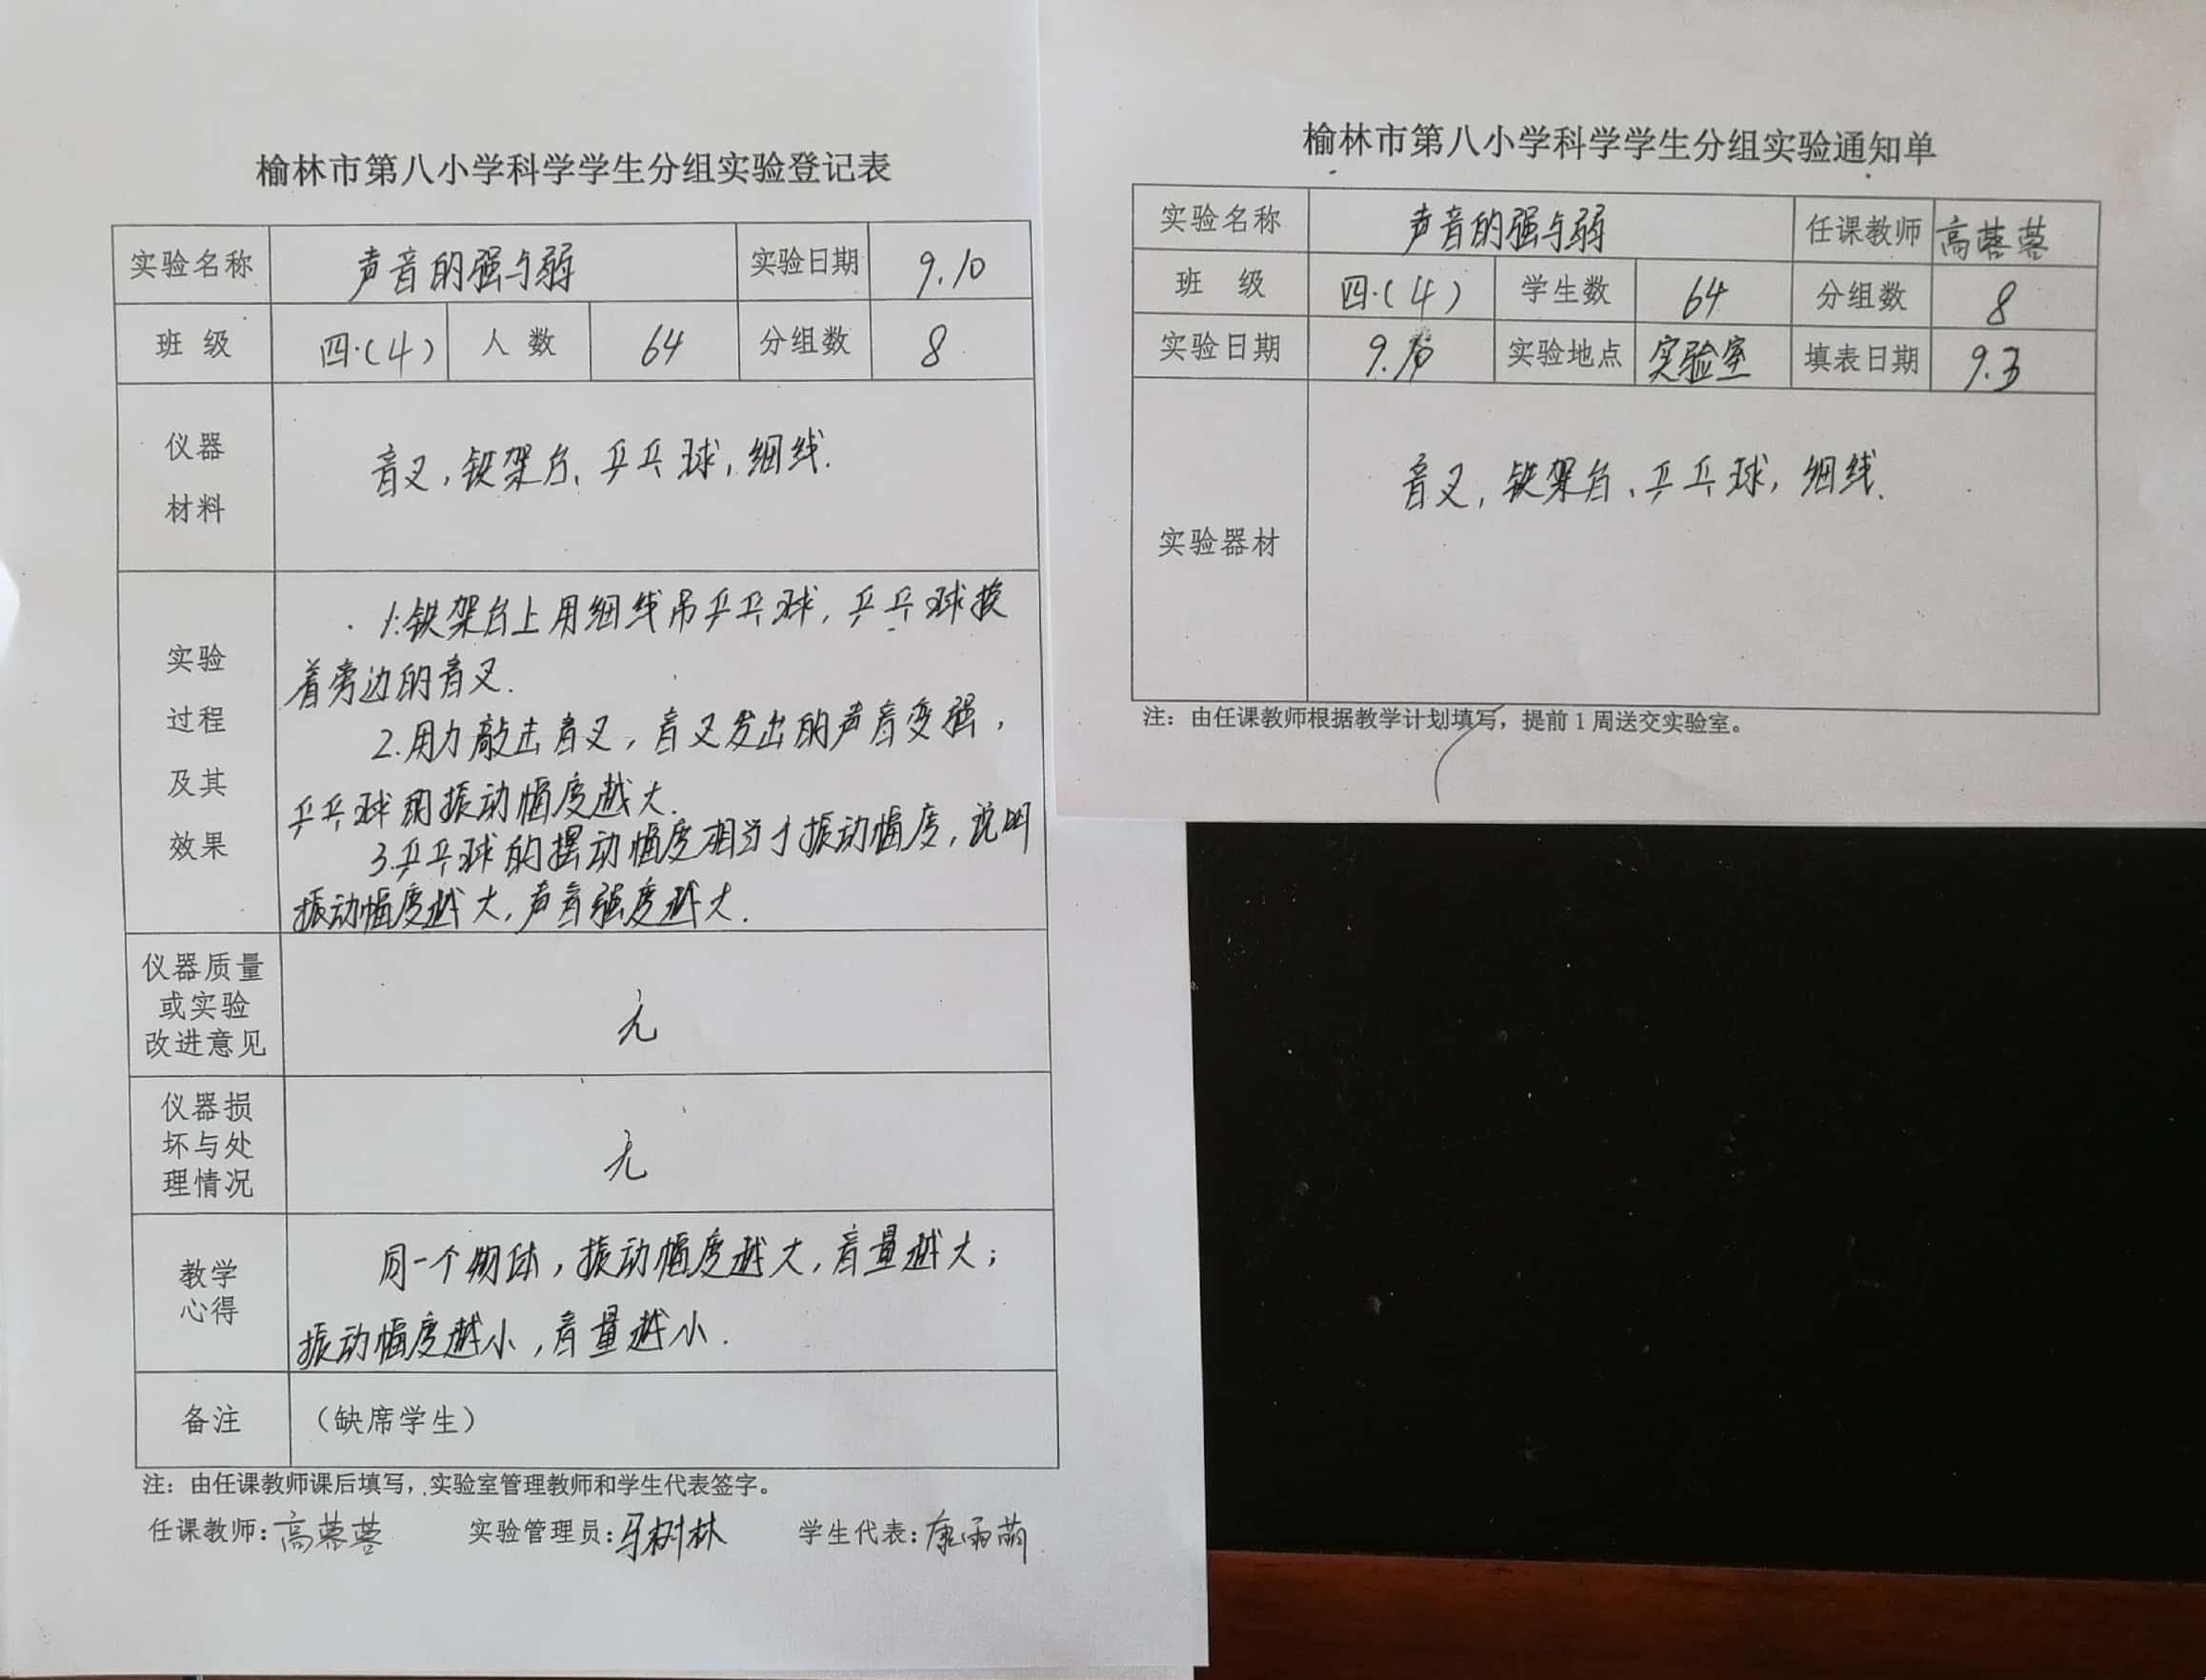 榆林市第八小学科学学生分组实验登记表
实验名称 声音的强与弱 实验日期 9.10
班 级 四.(4) 人 数 64 分组数 8
仪器
材料
音叉,铁架台、乒乓球,细线.
实验
过程
及其
效果
1.铁架台上用细线吊乒乓球,乒乓球挨
着旁边的音叉.
2.用力敲击音叉,音叉发出的声音变强,
乒乓球的振动幅度越大.
3.乒乓球的摆动幅度相当于振动幅度,说明
振动幅度越大,声音强度越大.
仪器质量
或实验
改进意见
无
仪器损
坏与处
理情况
无
教学
心得
同一个物体,振动幅度越大,音量越大;
振动幅度越小,音量越小.
备注 (缺席学生)
注:由任课教师课后填写,实验室管理教师和学生代表签字。
任课教师:高蓉蓉 实验管理员:马树林 学生代表:康雨萌
榆林市第八小学科学学生分组实验通知单
实验名称 声音的强与弱 任课教师 高蓉蓉
班 级 四.(4) 学生数 64 分组数 8
实验日期 9.10 实验地点 实验室 填表日期 9.3
实验器材
音叉,铁架台、乒乓球,细线.
注:由任课教师根据教学计划填写,提前1周送交实验室。